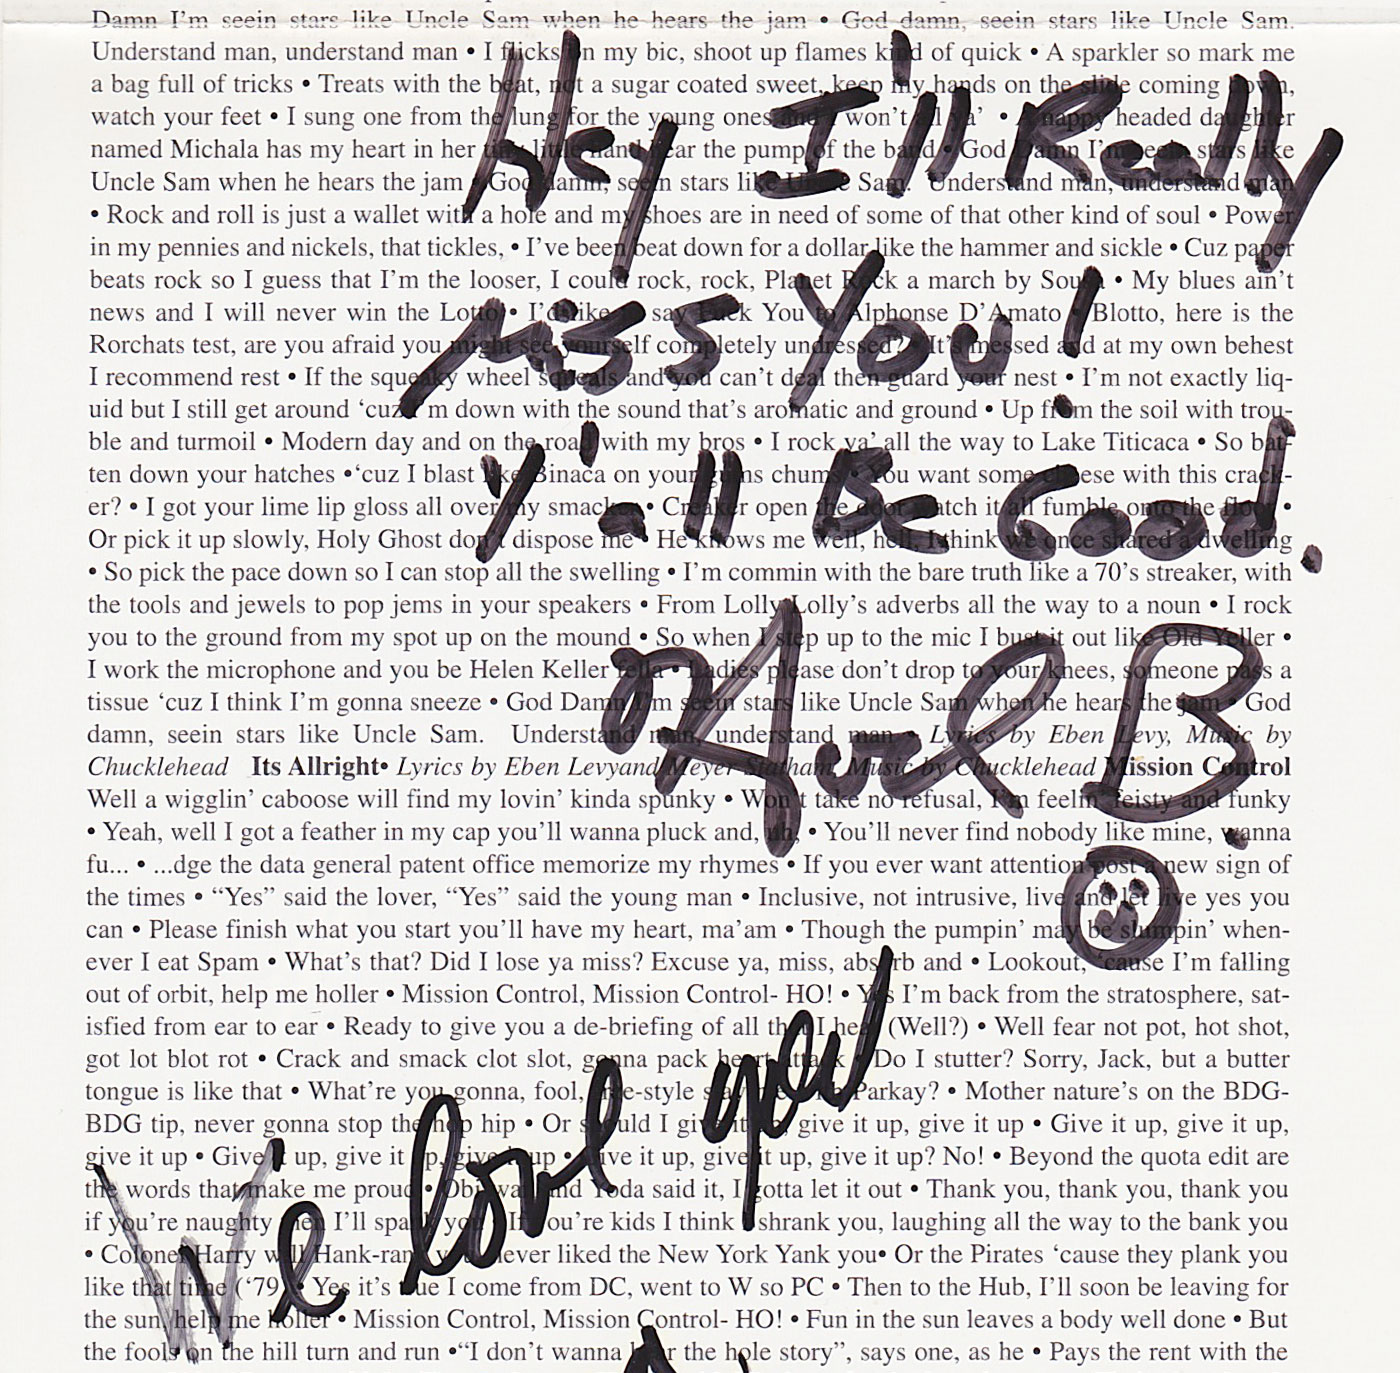 Damn I'm seein stars like Uncle Sam when he hears the jam • God damn, seein stars like Uncle Sam.
Understand man, understand man • I flicks on my bic, shoot up flames kind of quick • A sparkler so mark me
a bag full of tricks • Treats with the beat, not a sugar coated sweet, keep my hands on the slide coming down,
watch your feet • I sung one from the lung for the young ones and I won't ya' • A nappy headed daughter
named Michala has my heart in her tiny little hand hear the pump of the band • God Damn I'm seein stars like
Uncle Sam when he hears the jam • God damn, seein stars like Uncle Sam. Understand man, understand man
• Rock and roll is just a wallet with a hole and my shoes are in need of some of that other kind of soul • Power
in my pennies and nickels, that tickles, • I've been beat down for a dollar like the hammer and sickle • Cuz paper
beats rock so I guess that I'm the looser, I could rock, rock, Planet Rock a march by Sousa • My blues ain't
news and I will never win the Lotto • I'd like to say Fuck You to Alphonse D'Amato • Blotto, here is the
Rorchats test, are you afraid you might see yourself completely undressed? • It's messed and at my own behest
I recommend rest • If the squeaky wheel squeals and you can't deal then guard your nest • I'm not exactly liq-
uid but I still get around 'cuz I'm down with the sound that's aromatic and ground • Up from the soil with trou-
ble and turmoil • Modern day and on the road with my bros • I rock ya' all the way to Lake Titicaca • So bat-
ten down your hatches •'cuz I blast like Binaca on your gums chums • You want some cheese with this crack-
er? • I got your lime lip gloss all over my smacker • Creaker open the door watch it all fumble onto the floor •
Or pick it up slowly, Holy Ghost don't dispose me • He knows me well, hell, I think we once shared a dwelling
• So pick the pace down so I can stop all the swelling • I'm commin with the bare truth like a 70's streaker, with
the tools and jewels to pop jems in your speakers • From Lolly Lolly's adverbs all the way to a noun • I rock
you to the ground from my spot up on the mound • So when I step up to the mic I bust it out like Old Yeller •
I work the microphone and you be Helen Keller fella • Ladies please don't drop to your knees, someone pass a
tissue 'cuz I think I'm gonna sneeze • God Damn I'm seein stars like Uncle Sam when he hears the jam • God
damn, seein stars like Uncle Sam. Understand man, understand man • Lyrics by Eben Levy, Music by
Chucklehead Its Allright• Lyrics by Eben Levyand Meyer Statham, Music by Chucklehead Mission Control
Well a wigglin' caboose will find my lovin' kinda spunky • Won't take no refusal, I'm feelin' feisty and funky
• Yeah, well I got a feather in my cap you'll wanna pluck and, uh, • You'll never find nobody like mine, wanna
fu... • ...dge the data general patent office memorize my rhymes • If you ever want attention post a new sign of
the times • "Yes" said the lover, "Yes" said the young man • Inclusive, not intrusive, live and let live yes you
can • Please finish what you start you'll have my heart, ma'am • Though the pumpin' may be slumpin' when-
ever I eat Spam • What's that? Did I lose ya miss? Excuse ya, miss, absorb and • Lookout, 'cause I'm falling
out of orbit, help me holler • Mission Control, Mission Control- HO! • Yes I'm back from the stratosphere, sat-
isfied from ear to ear • Ready to give you a de-briefing of all that I hear (Well?) • Well fear not pot, hot shot,
got lot blot rot • Crack and smack clot slot, gonna pack heart attack • Do I stutter? Sorry, Jack, but a butter
tongue is like that • What're you gonna, fool, free-style Parkay? • Mother nature's on the BDG-
BDG tip, never gonna stop the hop hip • Or should I give it up, give it up, give it up • Give it up, give it up,
give it up • Give it up, give it up, give it up • Give it up, give it up, give it up? No! • Beyond the quota edit are
the words that make me proud • Obi wan and Yoda said it, I gotta let it out • Thank you, thank you, thank you
if you're naughty then I'll spank you • If you're kids I think I shrank you, laughing all the way to the bank you
• Colonel Harry will Hank-ran never liked the New York Yank you• Or the Pirates 'cause they plank you
like that time ('79) • Yes it's true I come from DC, went to W so PC • Then to the Hub, I'll soon be leaving for
the sun, help me holler • Mission Control, Mission Control- HO! • Fun in the sun leaves a body well done • But
the fools on the hill turn and run •"I don't wanna hear the hole story", says one, as he • Pays the rent with the
Hey I'll Really
miss You!
Y'all Be Good!
B.
We love you